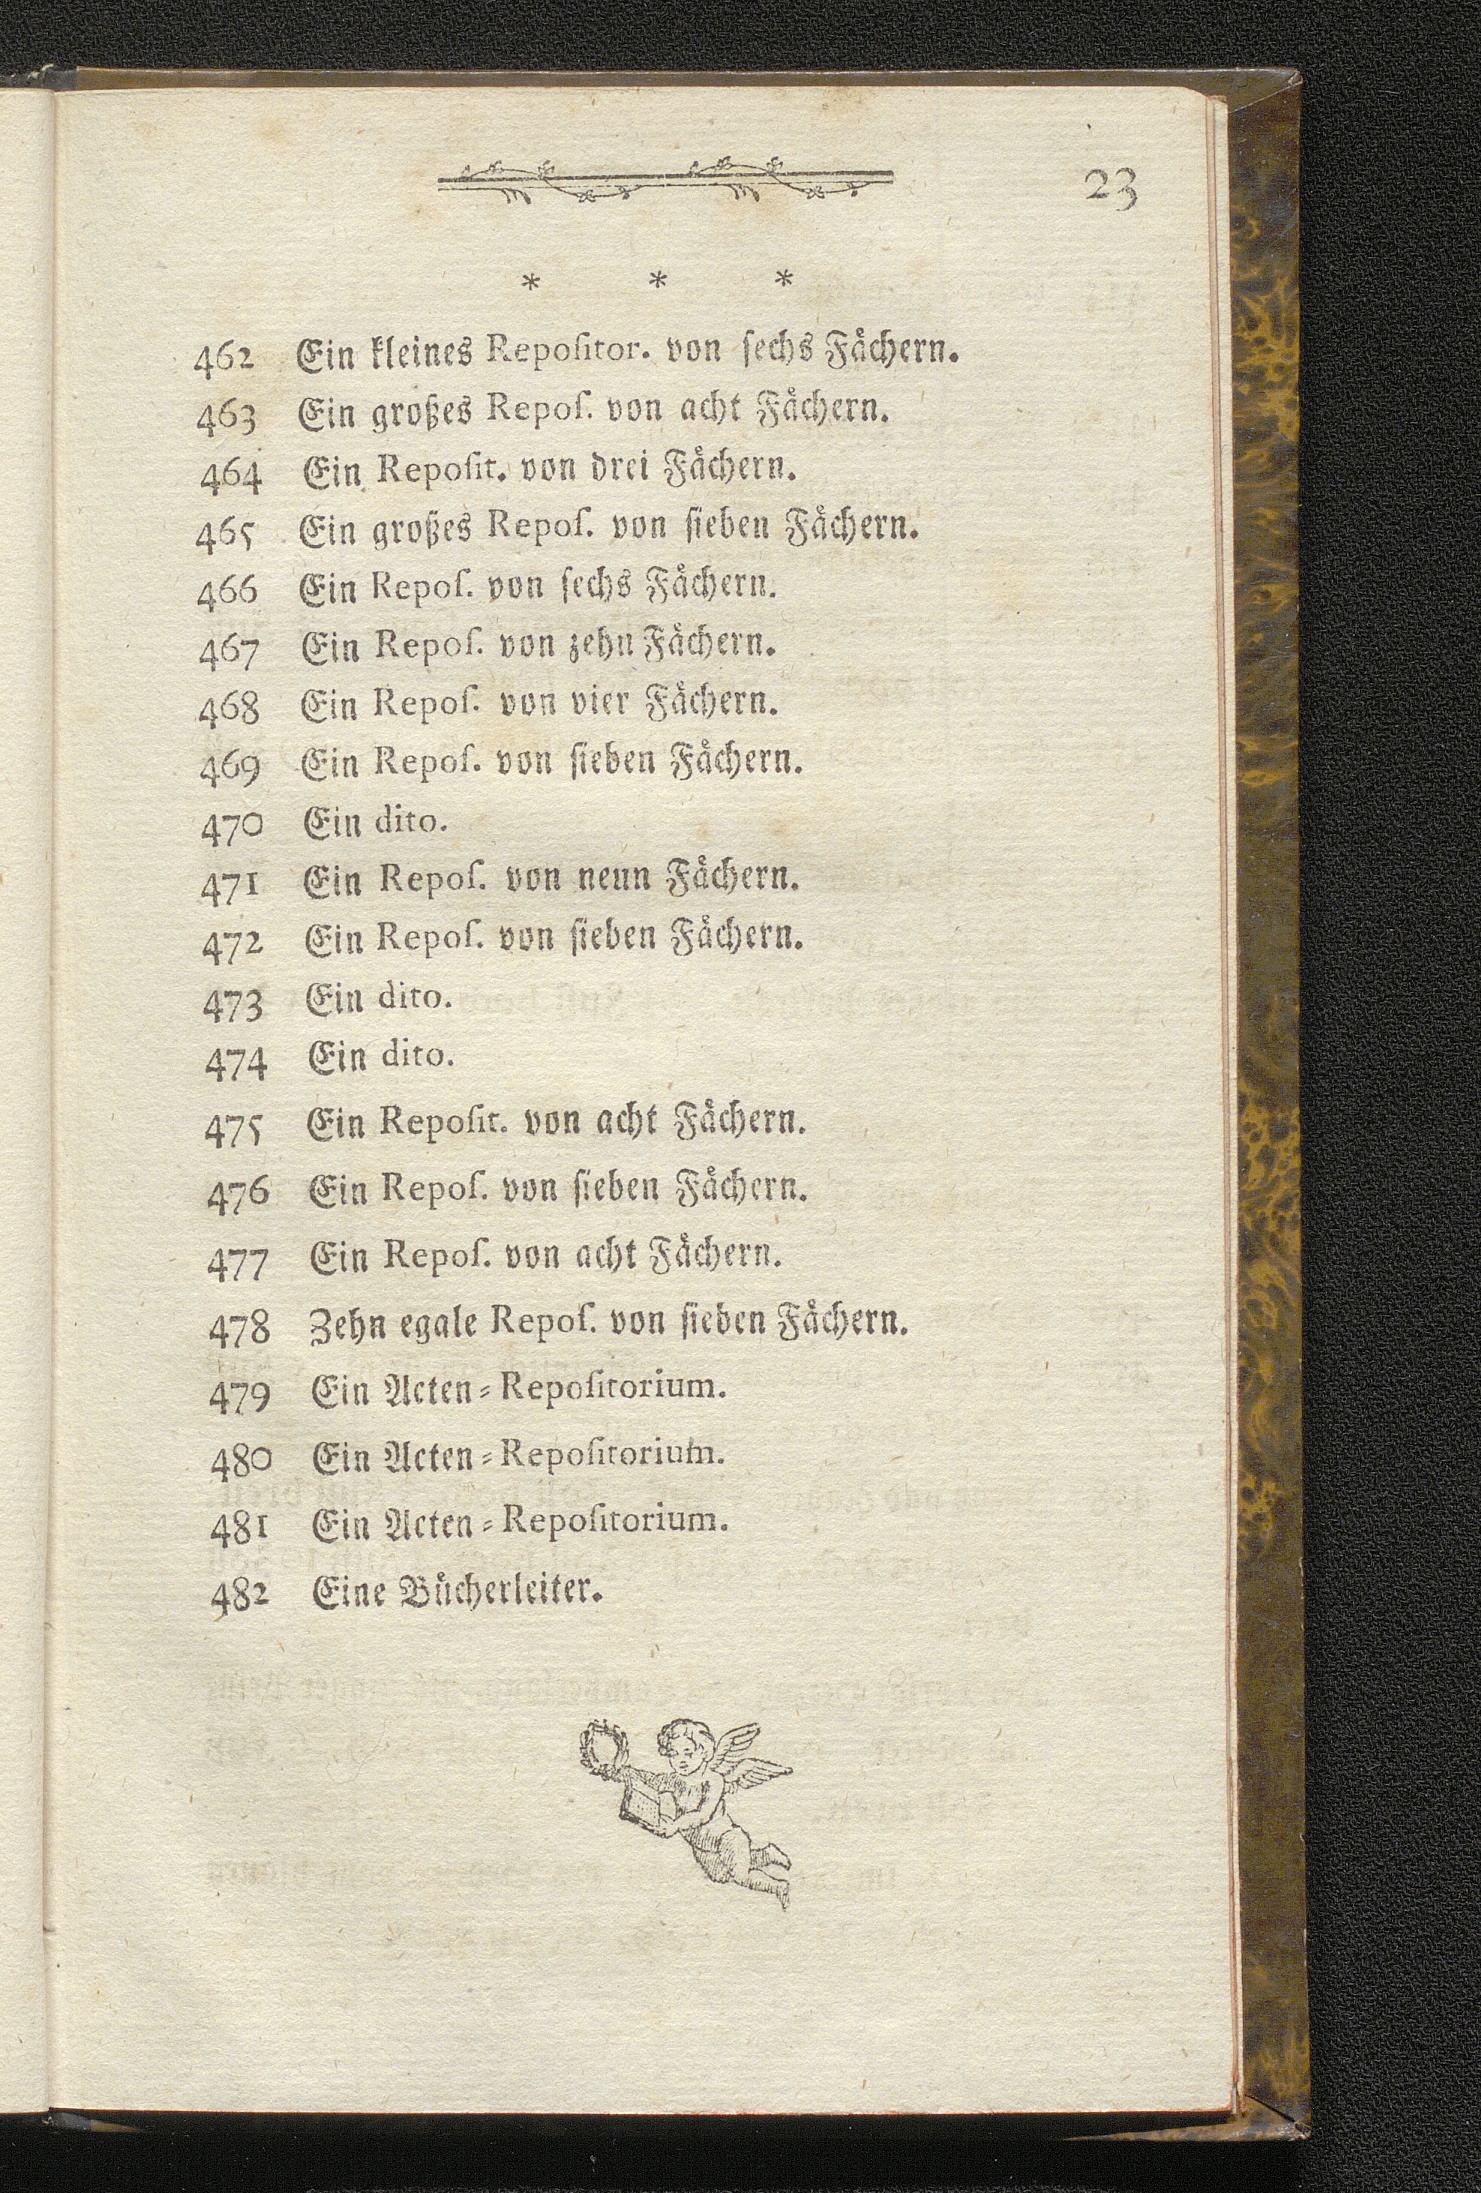 23
* * *
462 Ein kleines Repoſitor. von ſechs Fächern.
463 Ein großes Repoſ. von acht Fächern.
464 Ein Repoſit. von drei Fächern.
465 Ein großes Repoſ. von ſieben Fächern.
466 Ein Repoſ. von ſechs Fächern.
467 Ein Repoſ. von zehn Fächern.
468 Ein Repoſ. von vier Fächern.
469 Ein Repoſ. von ſieben Fächern.
470 Ein dito.
471 Ein Repoſ. von neun Fächern.
472 Ein Repoſ. von ſieben Fächern.
473 Ein dito.
474 Ein dito.
475 Ein Repoſit. von acht Fächern.
476 Ein Repoſ. von ſieben Fächern.
477 Ein Repoſ. von acht Fächern.
478 Zehn egale Repoſ. von ſieben Fächern.
479 Ein Acten-Repoſitorium.
480 Ein Acten-Repoſitorium.
481 Ein Acten-Repoſitorium.
482 Eine Bücherleiter.